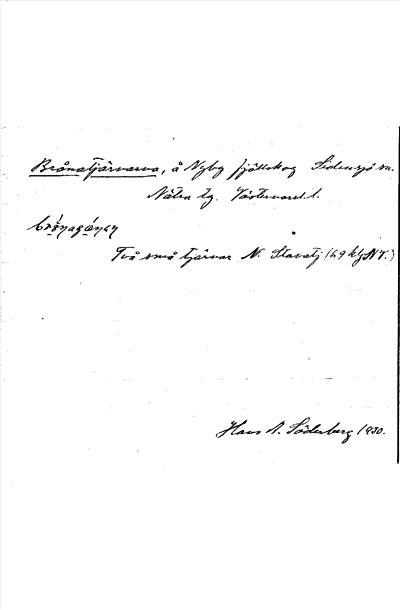 Brånatjärnarna, å Nyby fjällskog Sidensjö sn.
Nätra tg. Västernorrl. l.
Två små tjärnar N. Stavatj (69 h/j NV.)
Hans A. Söderberg 1930.